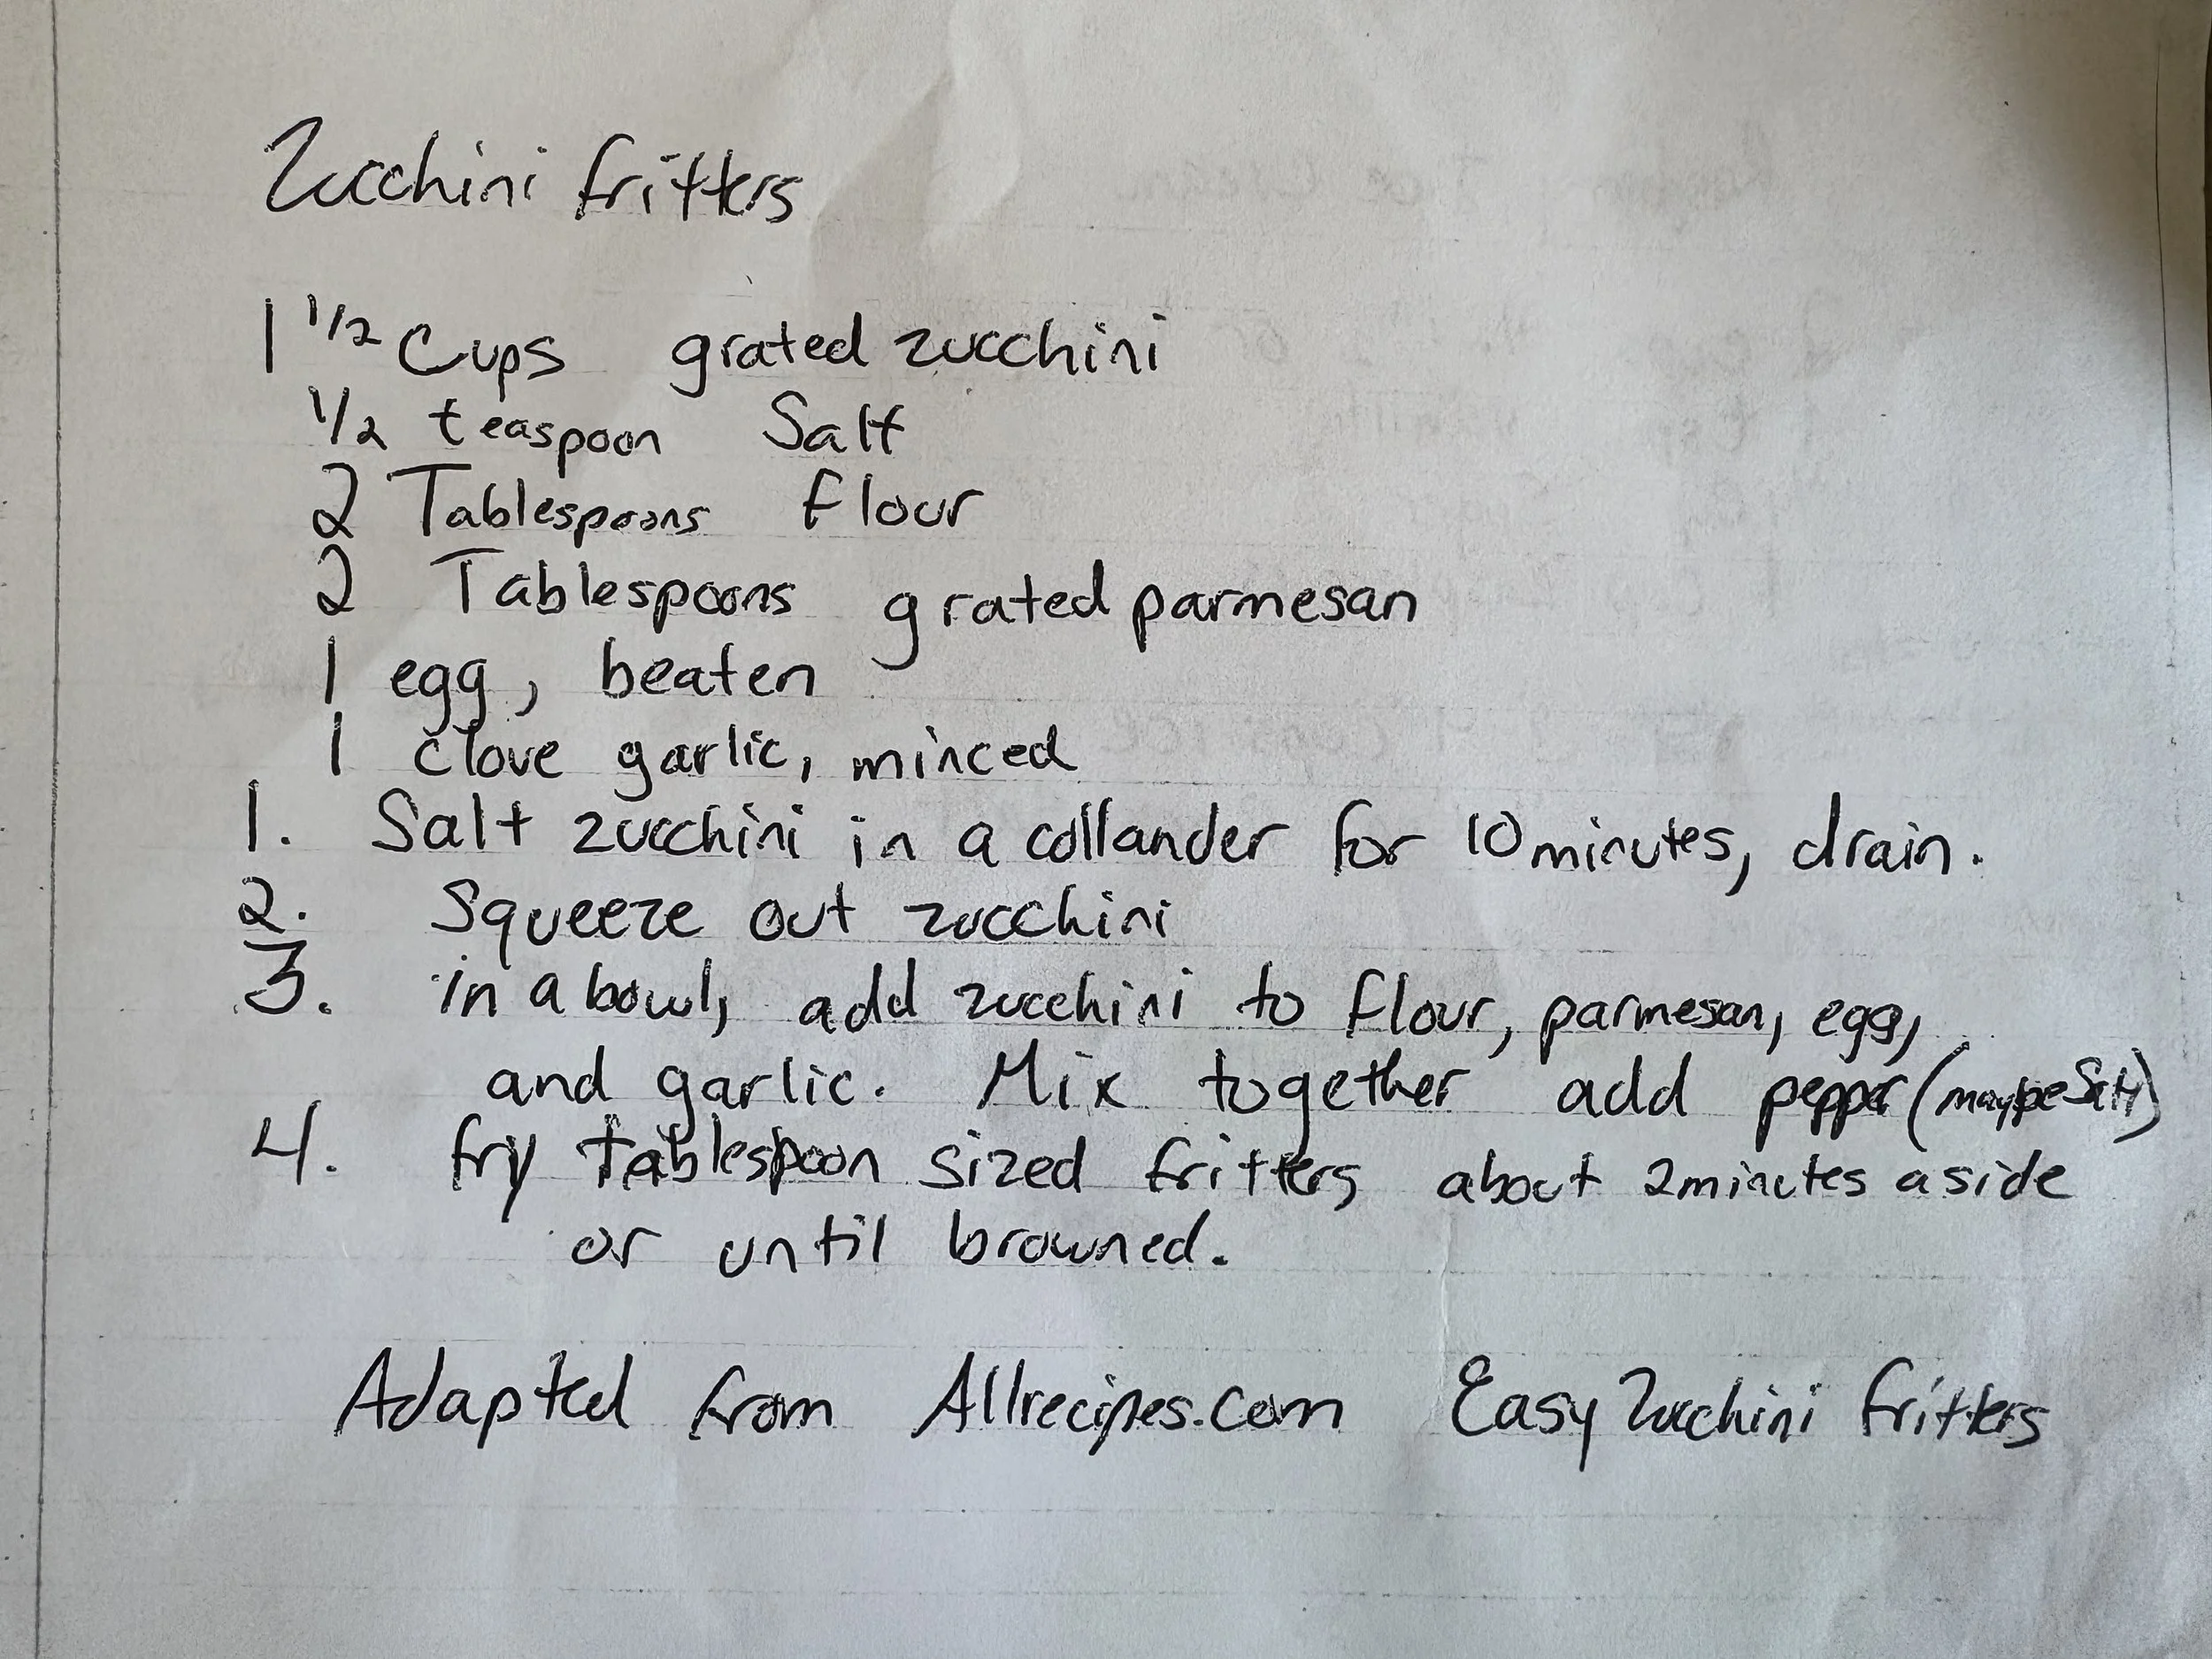 Zucchini fritters
1 1/2 Cups grated zucchini
1/2 teaspoon Salt
2 Tablespoons flour
2 Tablespoons grated parmesan
1 egg, beaten
1 clove garlic, minced
1. Salt zucchini in a collander for 10 minutes, drain.
2. Squeeze out zucchini
3. in a bowl, add zucchini to flour, parmesan, egg,
and garlic. Mix together add pepper (maybe Salt)
4. fry tablespoon sized fritters about 2 minutes a side
or until browned.
Adapted from Allrecipes.com Easy Zucchini fritters